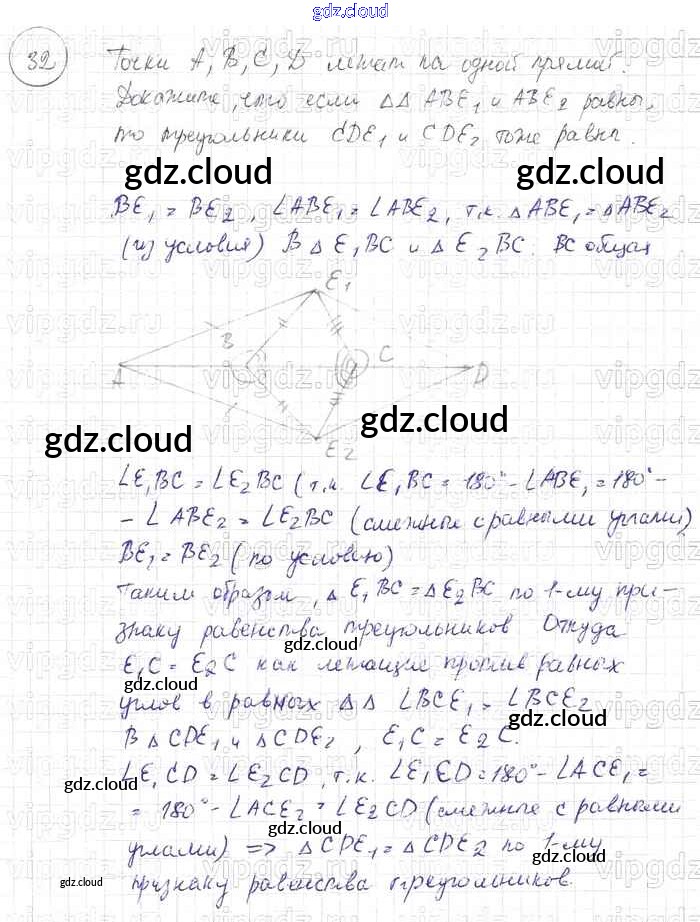 gdz.cloud
32
Точки A, B, C, D лежат на одной прямой.
Докажите, что если ΔΔ ABE₁ и ABE₂ равны,
то треугольники CDE₁ и CDE₂ тоже равны.
gdz.cloud gdz.cloud
BE₁ = BE₂, ∠ABE₁ = ∠ABE₂, т.к. ΔABE₁ = ΔABE₂
(из условия) В ΔE₁BC и ΔE₂BC. BC общая
E₁
B C
A D
gdz.cloud
gdz.cloud
E₂
∠E₁BC = ∠E₂BC (т.к. ∠E₁BC = 180° - ∠ABE₁ = 180° -
- ∠ABE₂ = ∠E₂BC (смежные с равными углами)
BE₁ = BE₂ (по условию)
Таким образом, ΔE₁BC = ΔE₂BC по 1-му при-
знаку равенства треугольников Откуда
gdz.cloud
E₁C = E₂C как лежащие против равных
gdz.cloud
углов в равных ΔΔ ∠BCE₁ = ∠BCE₂
gdz.cloud
В ΔCDE₁ и ΔCDE₂, E₁C = E₂C.
∠E₁CD = ∠E₂CD, т.к. ∠E₁CD = 180° - ∠ACE₁ =
gdz.cloud
= 180° - ∠ACE₂ = ∠E₂CD (смежные с равными
gdz.cloud
углами) => ΔCDE₁ = ΔCDE₂ по 1-му
gdz.cloud
gdz.cloud
признаку равенства треугольников.